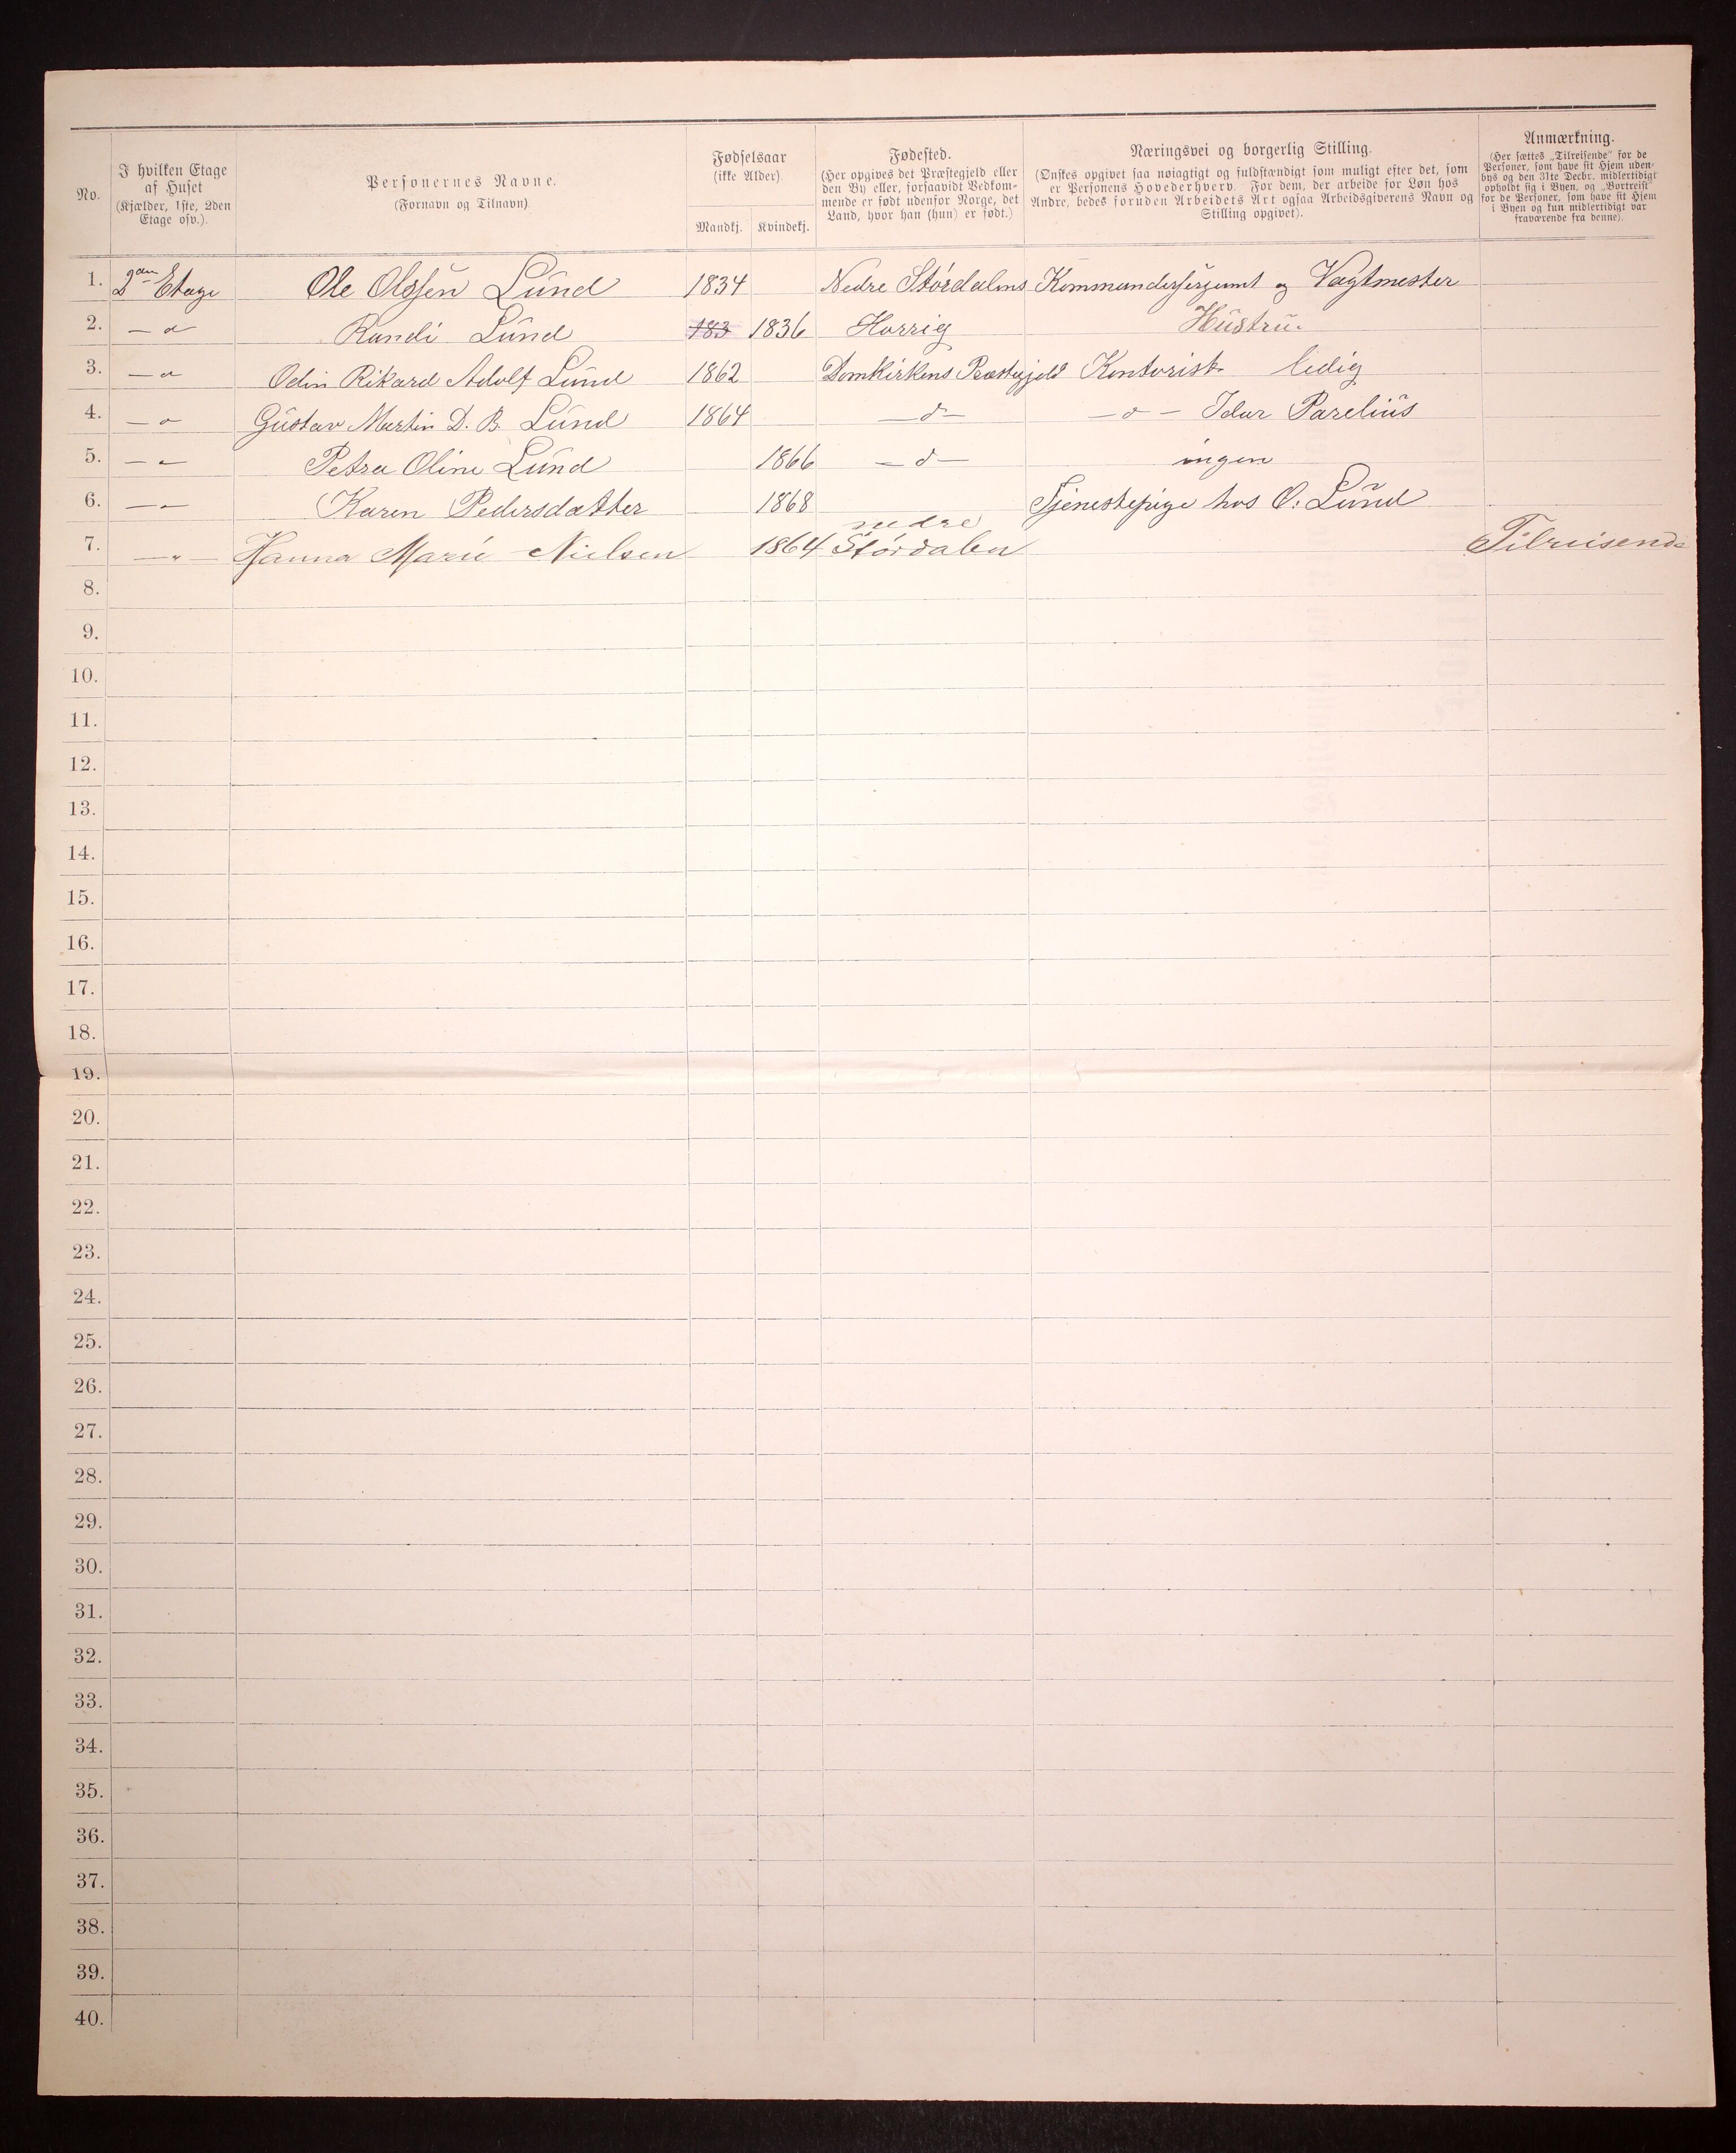 No.
I hvilken Etage
af Huset
(Kjælder, 1ste, 2den
Etage osv.).
Personernes Navne.
(Fornavn og Tilnavn)
Fødselsaar
(ikke Alder).
Mandkj. Kvindekj.
Fødested.
(Her opgives det Præstegjeld eller
den By eller, forsaavidt Vedkom-
mende er født udenfor Norge, det
Land, hvor han (hun) er født.)
Næringsvei og borgerlig Stilling.
(Ønskes opgivet saa nøiagtigt og fuldstændigt som muligt efter det, som
er Personens Hovederhverv. For dem, der arbeide for Løn hos
Andre, bedes foruden Arbeidets Art ogsaa Arbeidsgiverens Navn og
Stilling opgivet).
Anmærkning.
(Her sættes „Tilreisende" for de
Personer, som have sit Hjem uden-
bys og den 31te Decbr. midlertidigt
opholdt sig i Byen, og „Bortreist"
for de Personer, som have sit Hjem
i Byen og kun midlertidigt var
fraværende fra denne).
1. 2den Etage Ole Olssen Lund 1834 Nedre Stórdalens Kommandersergeant og Vagtmester
2. — d Randi Lund 183 1836 Horrig Hustru.
3. — d Odin Rikard Adolf Lund 1862 Domkirkens Præstegjeld Kontorist ledig
4. — d Gustav Martin D. B. Lund 1864 —d— —d— Idar Parelius
5. — — Petra Oline Lund 1866 —d— ingen
6. — — Karen Pedersdatter 1868 Tjenestepige hos O. Lund
7. —"— Hanna Marie Nielsen 1864 nedre Stórdalen Tilreisende
8.
9.
10.
11.
12.
13.
14.
15.
16.
17.
18.
19.
20.
21.
22.
23.
24.
25.
26.
27.
28.
29.
30.
31.
32.
33.
34.
35.
36.
37.
38.
39.
40.